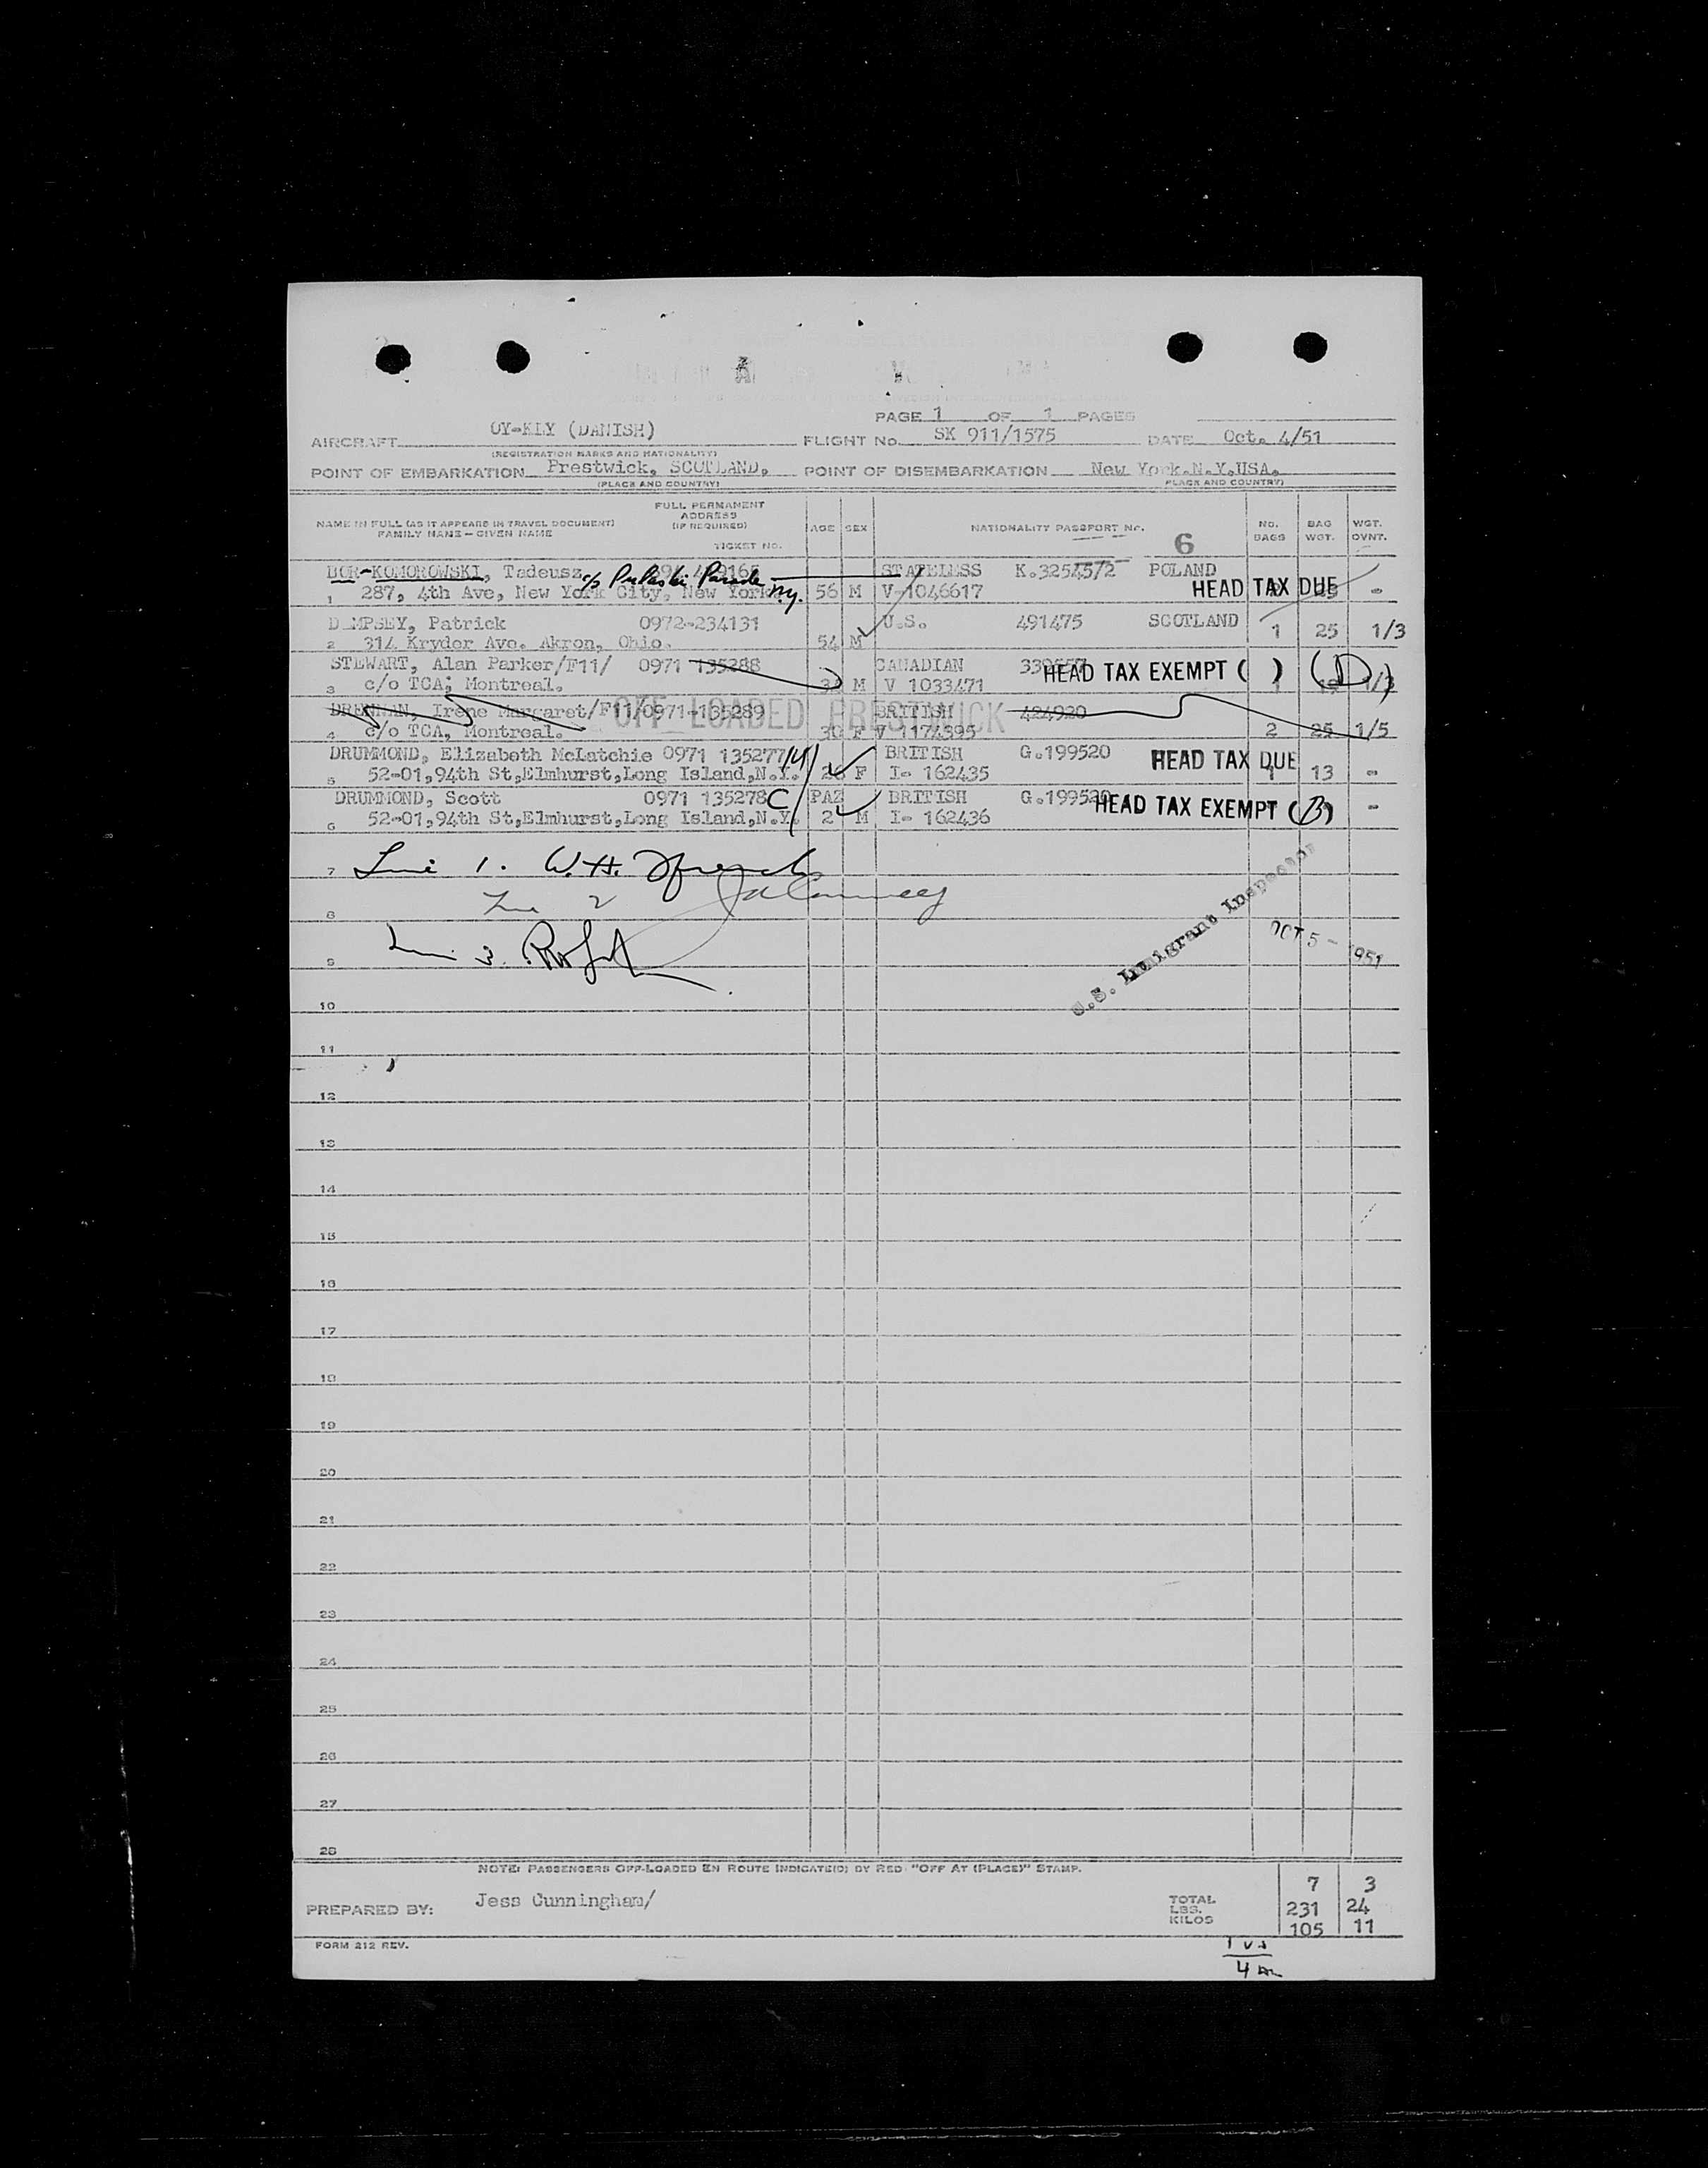 PAGE 1 OF 1 PAGES
AIRCRAFT OY-KLY (DANISH) FLIGHT No. SK 911/1575 DATE Oct. 4/51
(REGISTRATION MARKS AND NATIONALITY)
POINT OF EMBARKATION Prestwick, SCOTLAND, POINT OF DISEMBARKATION New York.N.Y.USA.
(PLACE AND COUNTRY) PLACE AND COUNTRY)
FULL PERMANENT
ADDRESS
NAME IN FULL (AS IT APPEARS IN TRAVEL DOCUMENT) (IF REQUIRED) AGE SEX NATIONALITY PASSPORT No. NO. BAG WGT.
FAMILY NAME – GIVEN NAME BAGS WGT. OVNT.
TICKET NO. 6
BOR-KOMOROWSKI, Tadeusz c/o Pulaski Parade STATELESS K.3254572 POLAND
1 287, 4th Ave, New York City, New York N.Y. 56 M V-1046617 HEAD TAX DUE -
DEMPSEY, Patrick 0972-234131 U.S. 491475 SCOTLAND
2 314 Kryder Ave. Akron, Ohio. 54 M 1 25 1/3
STEWART, Alan Parker/F11/ 0971 135288 CANADIAN HEAD TAX EXEMPT ( ) (D)
3 c/o TCA; Montreal. M V 1033471 1/3
DRENNAN, Irene Margaret/F11/0971-135289 BRITISH 424920
OFF LOADED PRESTWICK
4 c/o TCA, Montreal. 30 F V 1174395 2 25 1/5
DRUMMOND, Elizabeth McLatchie 0971 135277 BRITISH G.199520 HEAD TAX DUE
5 52-01,94th St,Elmhurst,Long Island,N.Y. 26 F I- 162435 1 13 -
DRUMMOND, Scott 0971 135278 C BRITISH G.199520 HEAD TAX EXEMPT (B)
6 52-01,94th St,Elmhurst,Long Island,N.Y. 2 M I- 162436 -
7 Line 1. W.H.
8 Line 2
9 Line 3.
U.S. Immigrant Inspector
OCT 5 - 1951
10
11
12
13
14
15
16
17
18
19
20
21
22
23
24
25
26
27
28
NOTE: PASSENGERS OFF-LOADED EN ROUTE INDICATE(D) BY RED "OFF AT (PLACE)" STAMP.
7 3
PREPARED BY: Jess Cunningham/ TOTAL
LBS. 231 24
KILOS 105 11
FORM 212 REV.
4